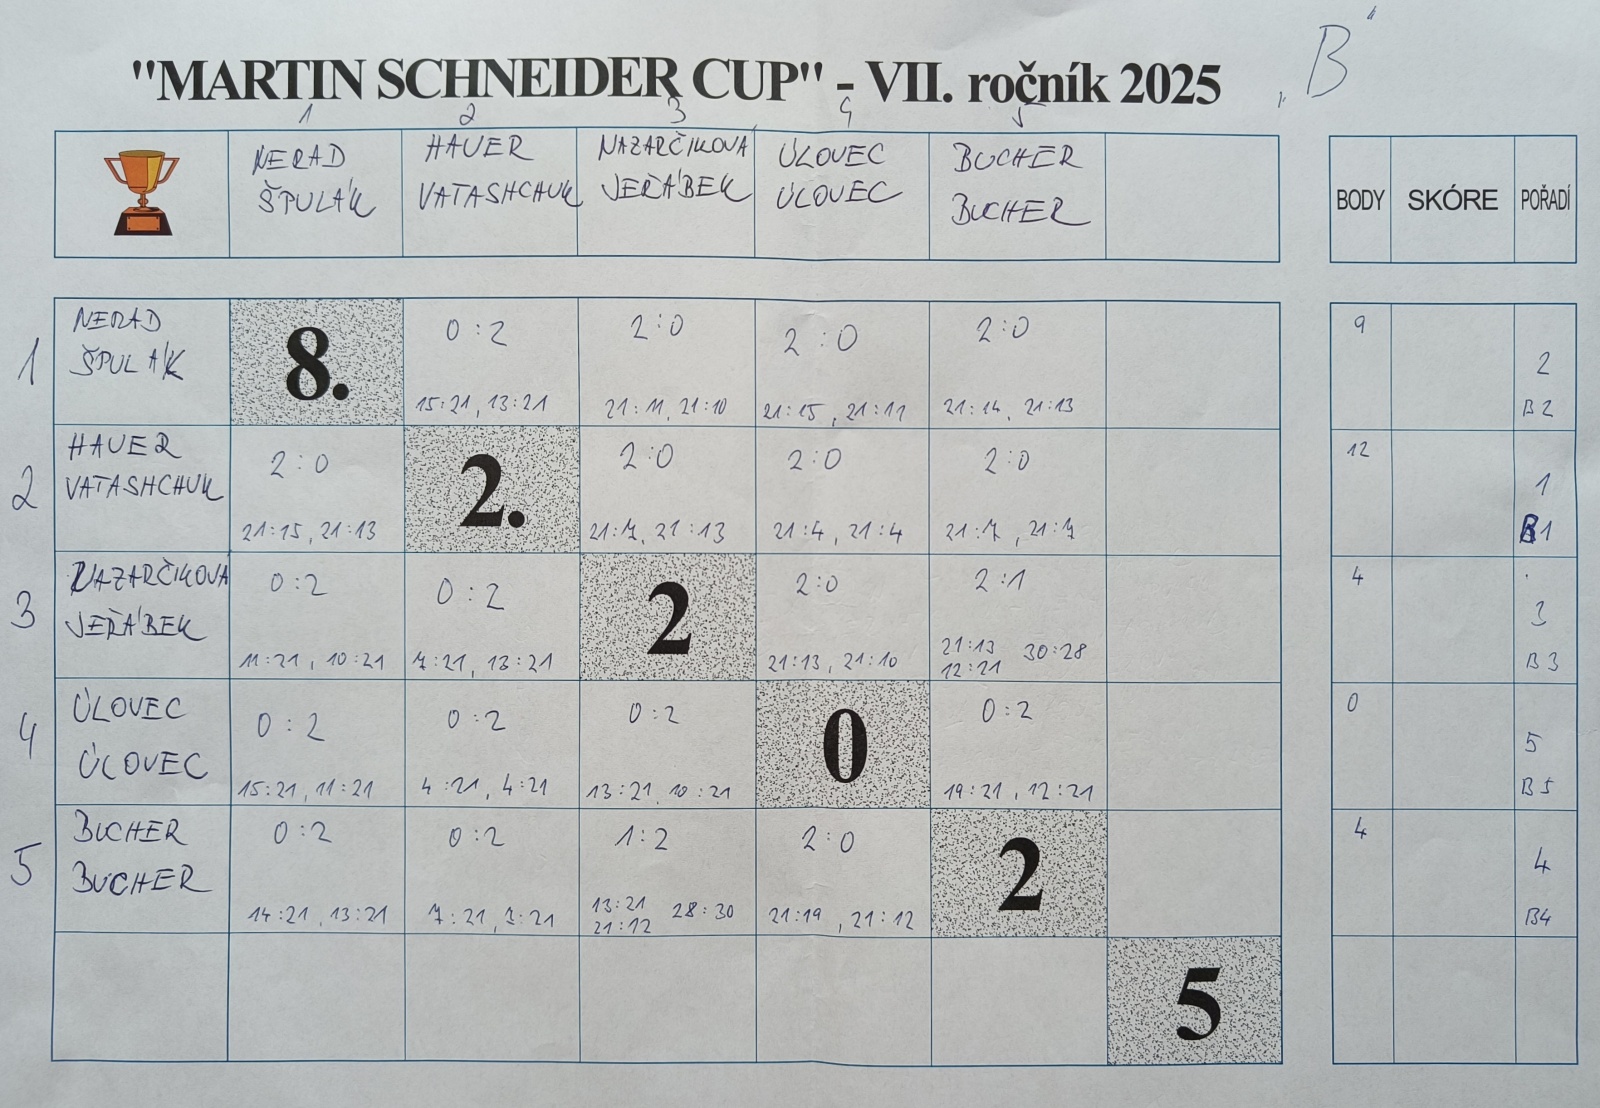 "B"
"MARTIN SCHNEIDER CUP" - VII. ročník 2025
1 2 3 4 5
NERAD ŠPULÁK
HAUER VATASHCHUK
NAZARČIKOVA JEŘÁBEK
ÚLOVEC ÚLOVEC
BUCHER BUCHER
BODY SKÓRE POŘADÍ
1 NERAD 0:2 2:0 2:0 2:0 9
ŠPULÁK 8. 2
15:21, 13:21 21:11, 21:10 21:15, 21:11 21:14, 21:13 B2
2 HAUER 2:0 2:0 2:0 2:0 12
VATASHCHUK 2. 1
21:15, 21:13 21:7, 21:13 21:4, 21:4 21:7, 21:7 B1
3 NAZARČIKOVA 0:2 0:2 2:0 2:1 4
JEŘÁBEK 2 3
11:21, 10:21 7:21, 13:21 21:13, 21:10 21:13 12:21 30:28 B3
4 ÚLOVEC 0:2 0:2 0:2 0:2 0
ÚLOVEC 0 5
15:21, 11:21 4:21, 4:21 13:21, 10:21 19:21, 12:21 B5
5 BUCHER 0:2 0:2 1:2 2:0 4
BUCHER 2 4
14:21, 13:21 7:21, 7:21 13:21 21:12 28:30 21:19, 21:12 B4
5